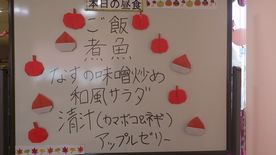 本日の昼食
ご飯
煮魚
なすの味噌炒め
和風サラダ
清汁(カマボコ&ネギ)
アップルゼリー